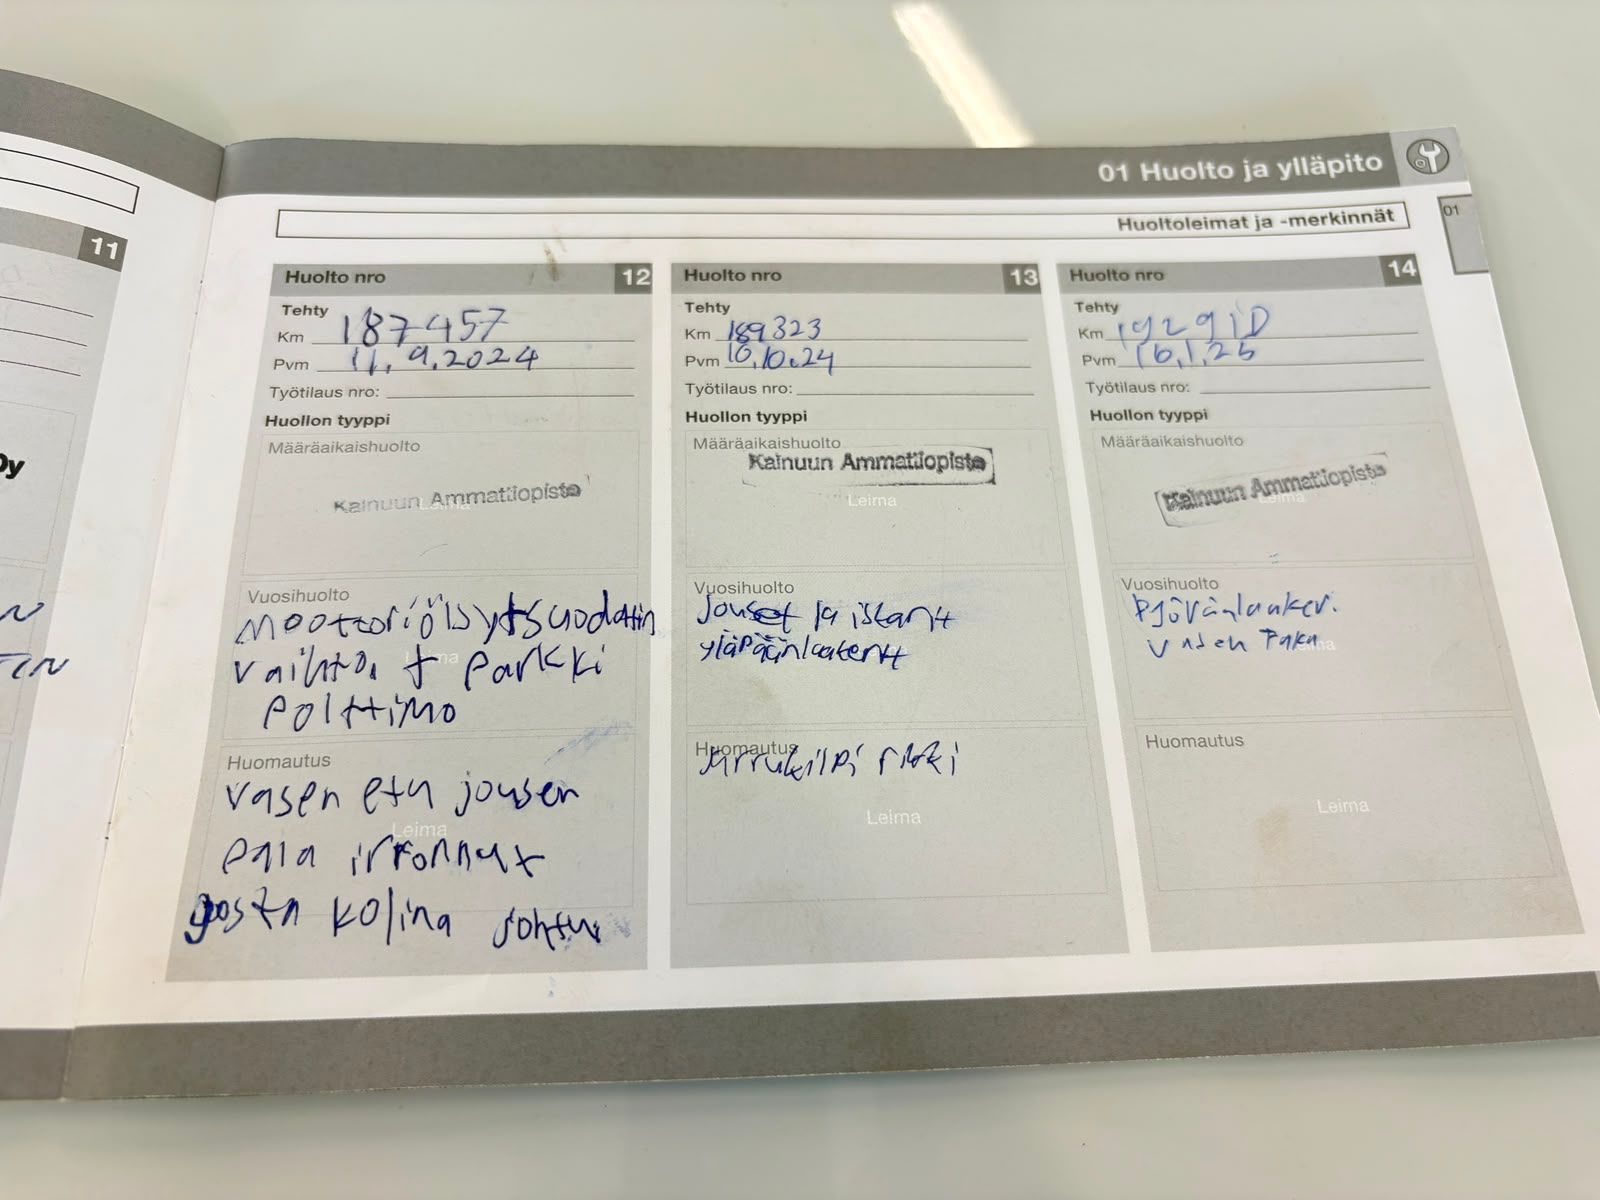 01 Huolto ja ylläpito
Huoltoleimat ja -merkinnät
01
11
Oy
Huolto nro 12
Tehty
Km 187457
Pvm 11.9.2024
Työtilaus nro:
Huollon tyyppi
Määräaikaishuolto
Kainuun Ammattiopisto
Leima
Vuosihuolto
moottoriöljy+suodatin
vaihto. + parkki
polttimo
Huomautus
vasen etu jousen
Leima
pala irronnut
josta kolina johtu
Huolto nro 13
Tehty
Km 189323
Pvm 10.10.24
Työtilaus nro:
Huollon tyyppi
Määräaikaishuolto
Kainuun Ammattiopisto
Leima
Vuosihuolto
Jouset ja
Huomautus
Jarrukilpi rikki
Leima
Huolto nro 14
Tehty
Km 192910
Pvm 16.1.25
Työtilaus nro:
Huollon tyyppi
Määräaikaishuolto
Kainuun Ammattiopisto
Leima
Vuosihuolto
Pyöränlaaker.
vasen taka
Huomautus
Leima